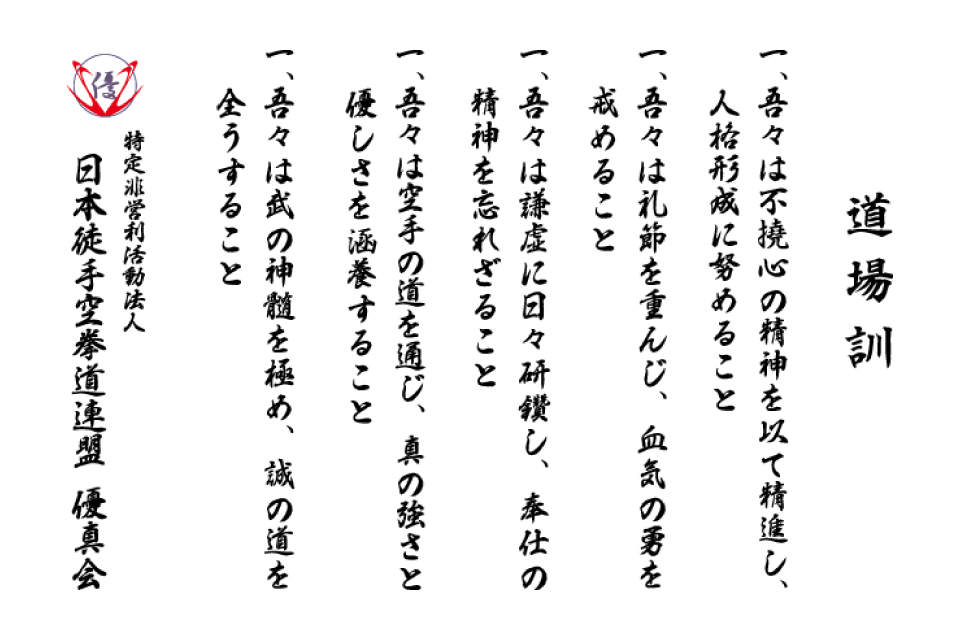 道場訓
一、吾々は不撓心の精神を以て精進し、
人格形成に努めること
一、吾々は礼節を重んじ、血気の勇を
戒めること
一、吾々は謙虚に日々研鑽し、奉仕の
精神を忘れざること
一、吾々は空手の道を通じ、真の強さと
優しさを涵養すること
一、吾々は武の神髄を極め、誠の道を
全うすること
特定非営利活動法人
日本徒手空拳道連盟 優真会
優